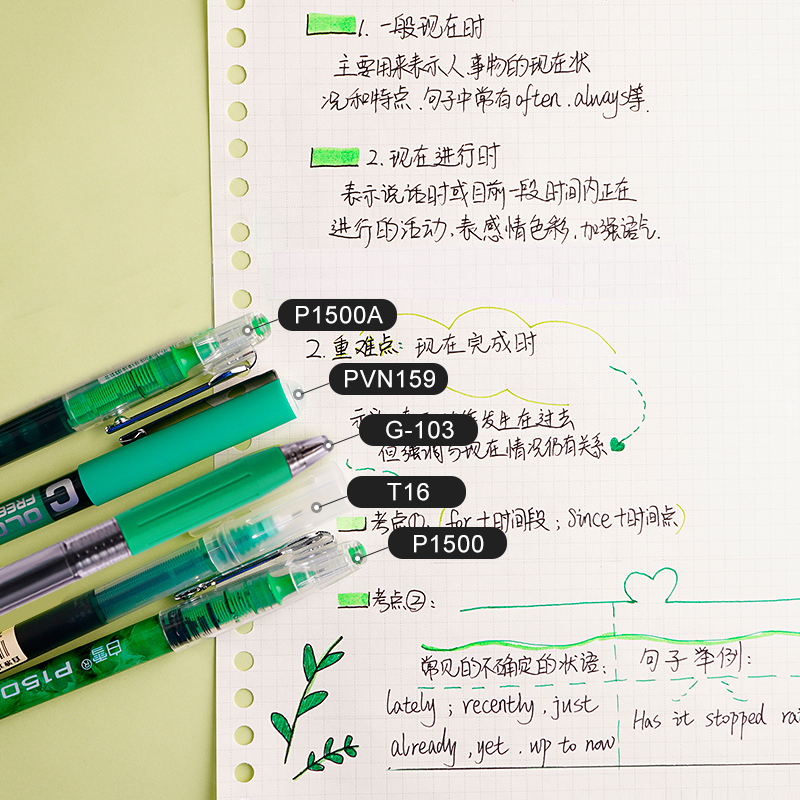 1. 一般现在时
主要用来表示人事物的现在状
况和特点.句子中常有often.always等.
2.现在进行时
表示说话时或目前一段时间内正在
进行的活动.表感情色彩,加强语气.
P1500A
2.重难点:现在完成时
PVN159
发生在过去
G-103
但强调与现在情况仍有关系
T16
考点①.(for+时间段;Since+时间点)
P1500
考点②:
常见的不确定的状语:
句子举例:
lately ; recently , just
Has it stopped
already , yet . up to now
白雪® P150